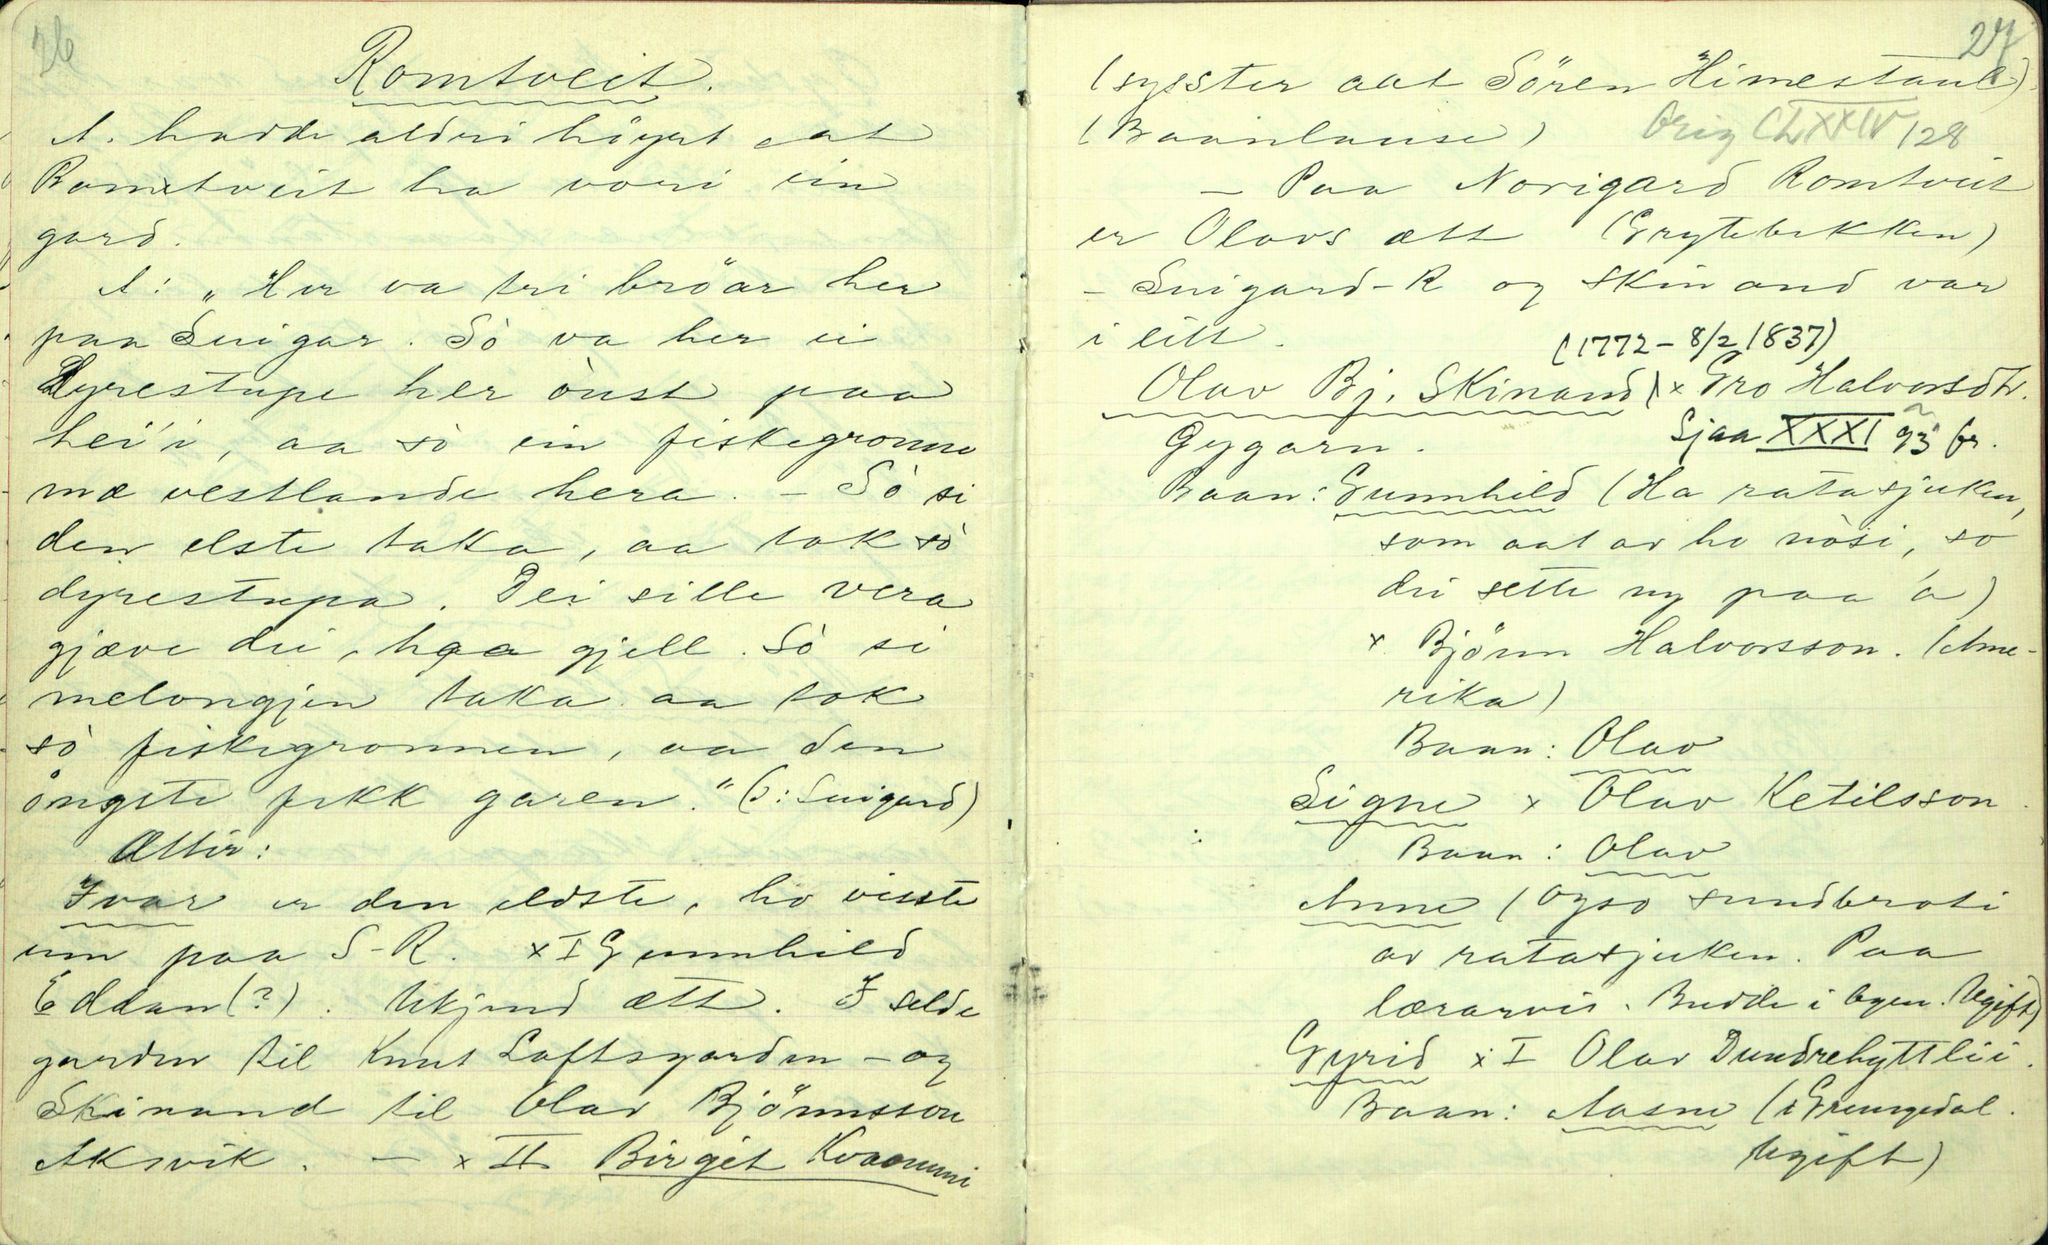 26
Romtveit.
A. hadde aldri höyrt at
Romtveit ha vori ein
gard.
A: „Her va tri bröar her
paa Suigar. Sò va her ei
Dyrestupe her òust paa
hei'i, aa sò ein fiskegronne
mæ vestlande hera. – Sò si
den elste taka, aa tok sò
dyrestupa. Dei sille vera
gjæve dei, haa gjell. Sò si
melongjen taka aa tok
sò fiskegronnen, aa den
öngste fekk garen." (ɔ: Suigard)
Ættir:
Ivar er den eldste, ho visste
um paa S-R. × I Gunnhild
Eddan (?). Ukjend ætt. I selde
garden til Knut Loftsgarden – og
Skinand til Olav Björnsson
Aksvik. – × II Birgit Kvaommi
27
(syster aat Sören Himestaul)
(Baanlause) Orig CLXXIV 128
– Paa Norigard Romtveit
er Olavs ætt (Grytebekken)
– Suigard-R og Skinand var
i eitt.
(1772 – 8/2 1837)
Olav Bj. Skinand × Gro Halvorsdtr.
Gygarn. Sjaa XXXI 93 fr.
Baan: Gunnhild (Ha ratasjuken,
som aat av ho nòsi, so
dei sette ny paa 'a)
× Björnn Halvorsson. (Ame-
rika)
Baan: Olav
Signe × Olav Ketilsson.
Baan: Olav
Anne (Ogso sundbroti
av ratasjuken. Paa
lærarvis. Budde i byen. Ugift)
Gyrid × I Olav Dundrehyttlii.
Baan: Aasne (i Grungedal.
Ugift)